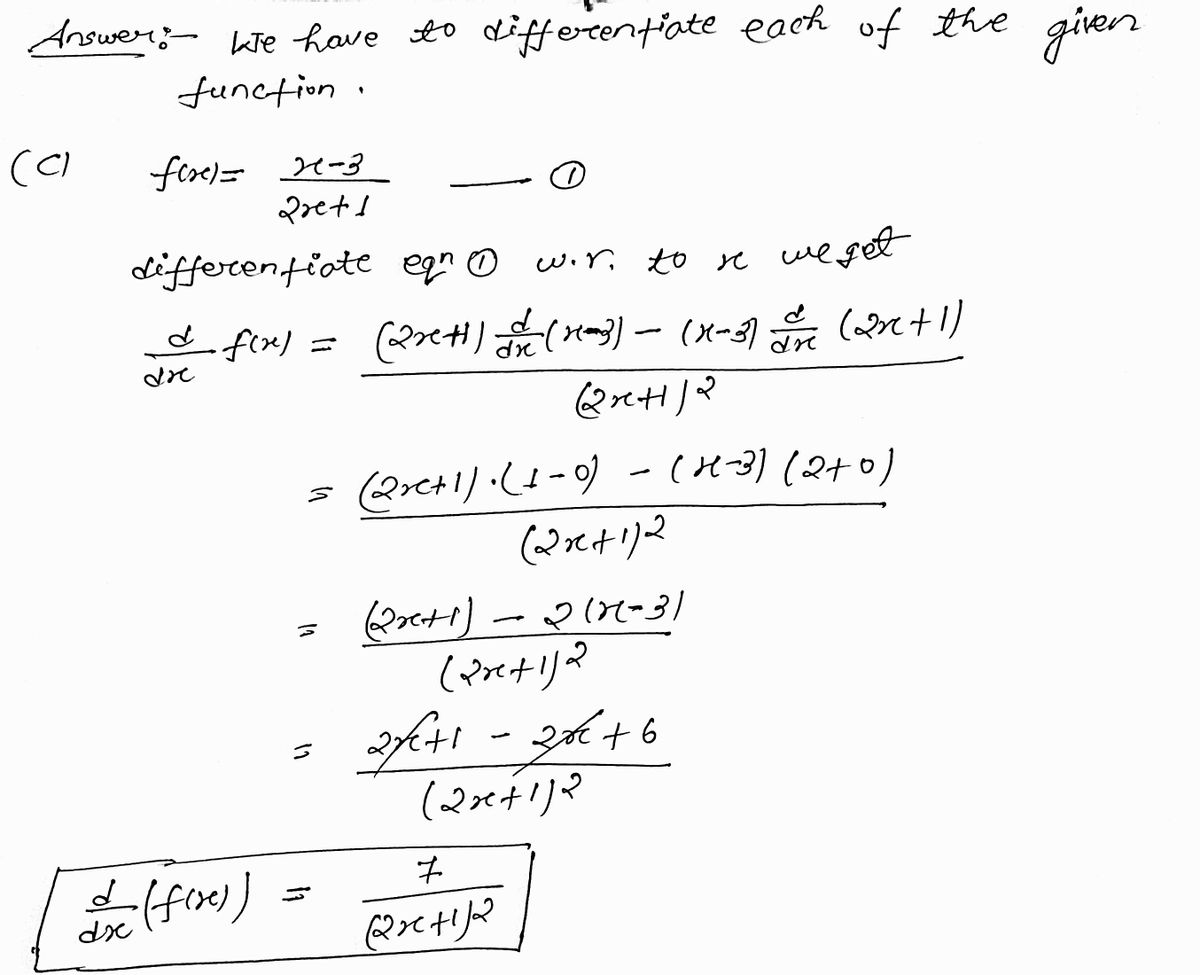 Answer:- We have to differentiate each of the given
function.
(C) f(x) = (x-3)/(2x+1) — ①
differentiate eqn ① w.r. to x we get
d/dx f(x) = ((2x+1) d/dx (x-3) - (x-3) d/dx (2x+1))/(2x+1)²
= ((2x+1)·(1-0) - (x-3)(2+0))/(2x+1)²
= ((2x+1) - 2(x-3))/(2x+1)²
= (2x+1 - 2x+6)/(2x+1)²
d/dx (f(x)) = 7/(2x+1)²